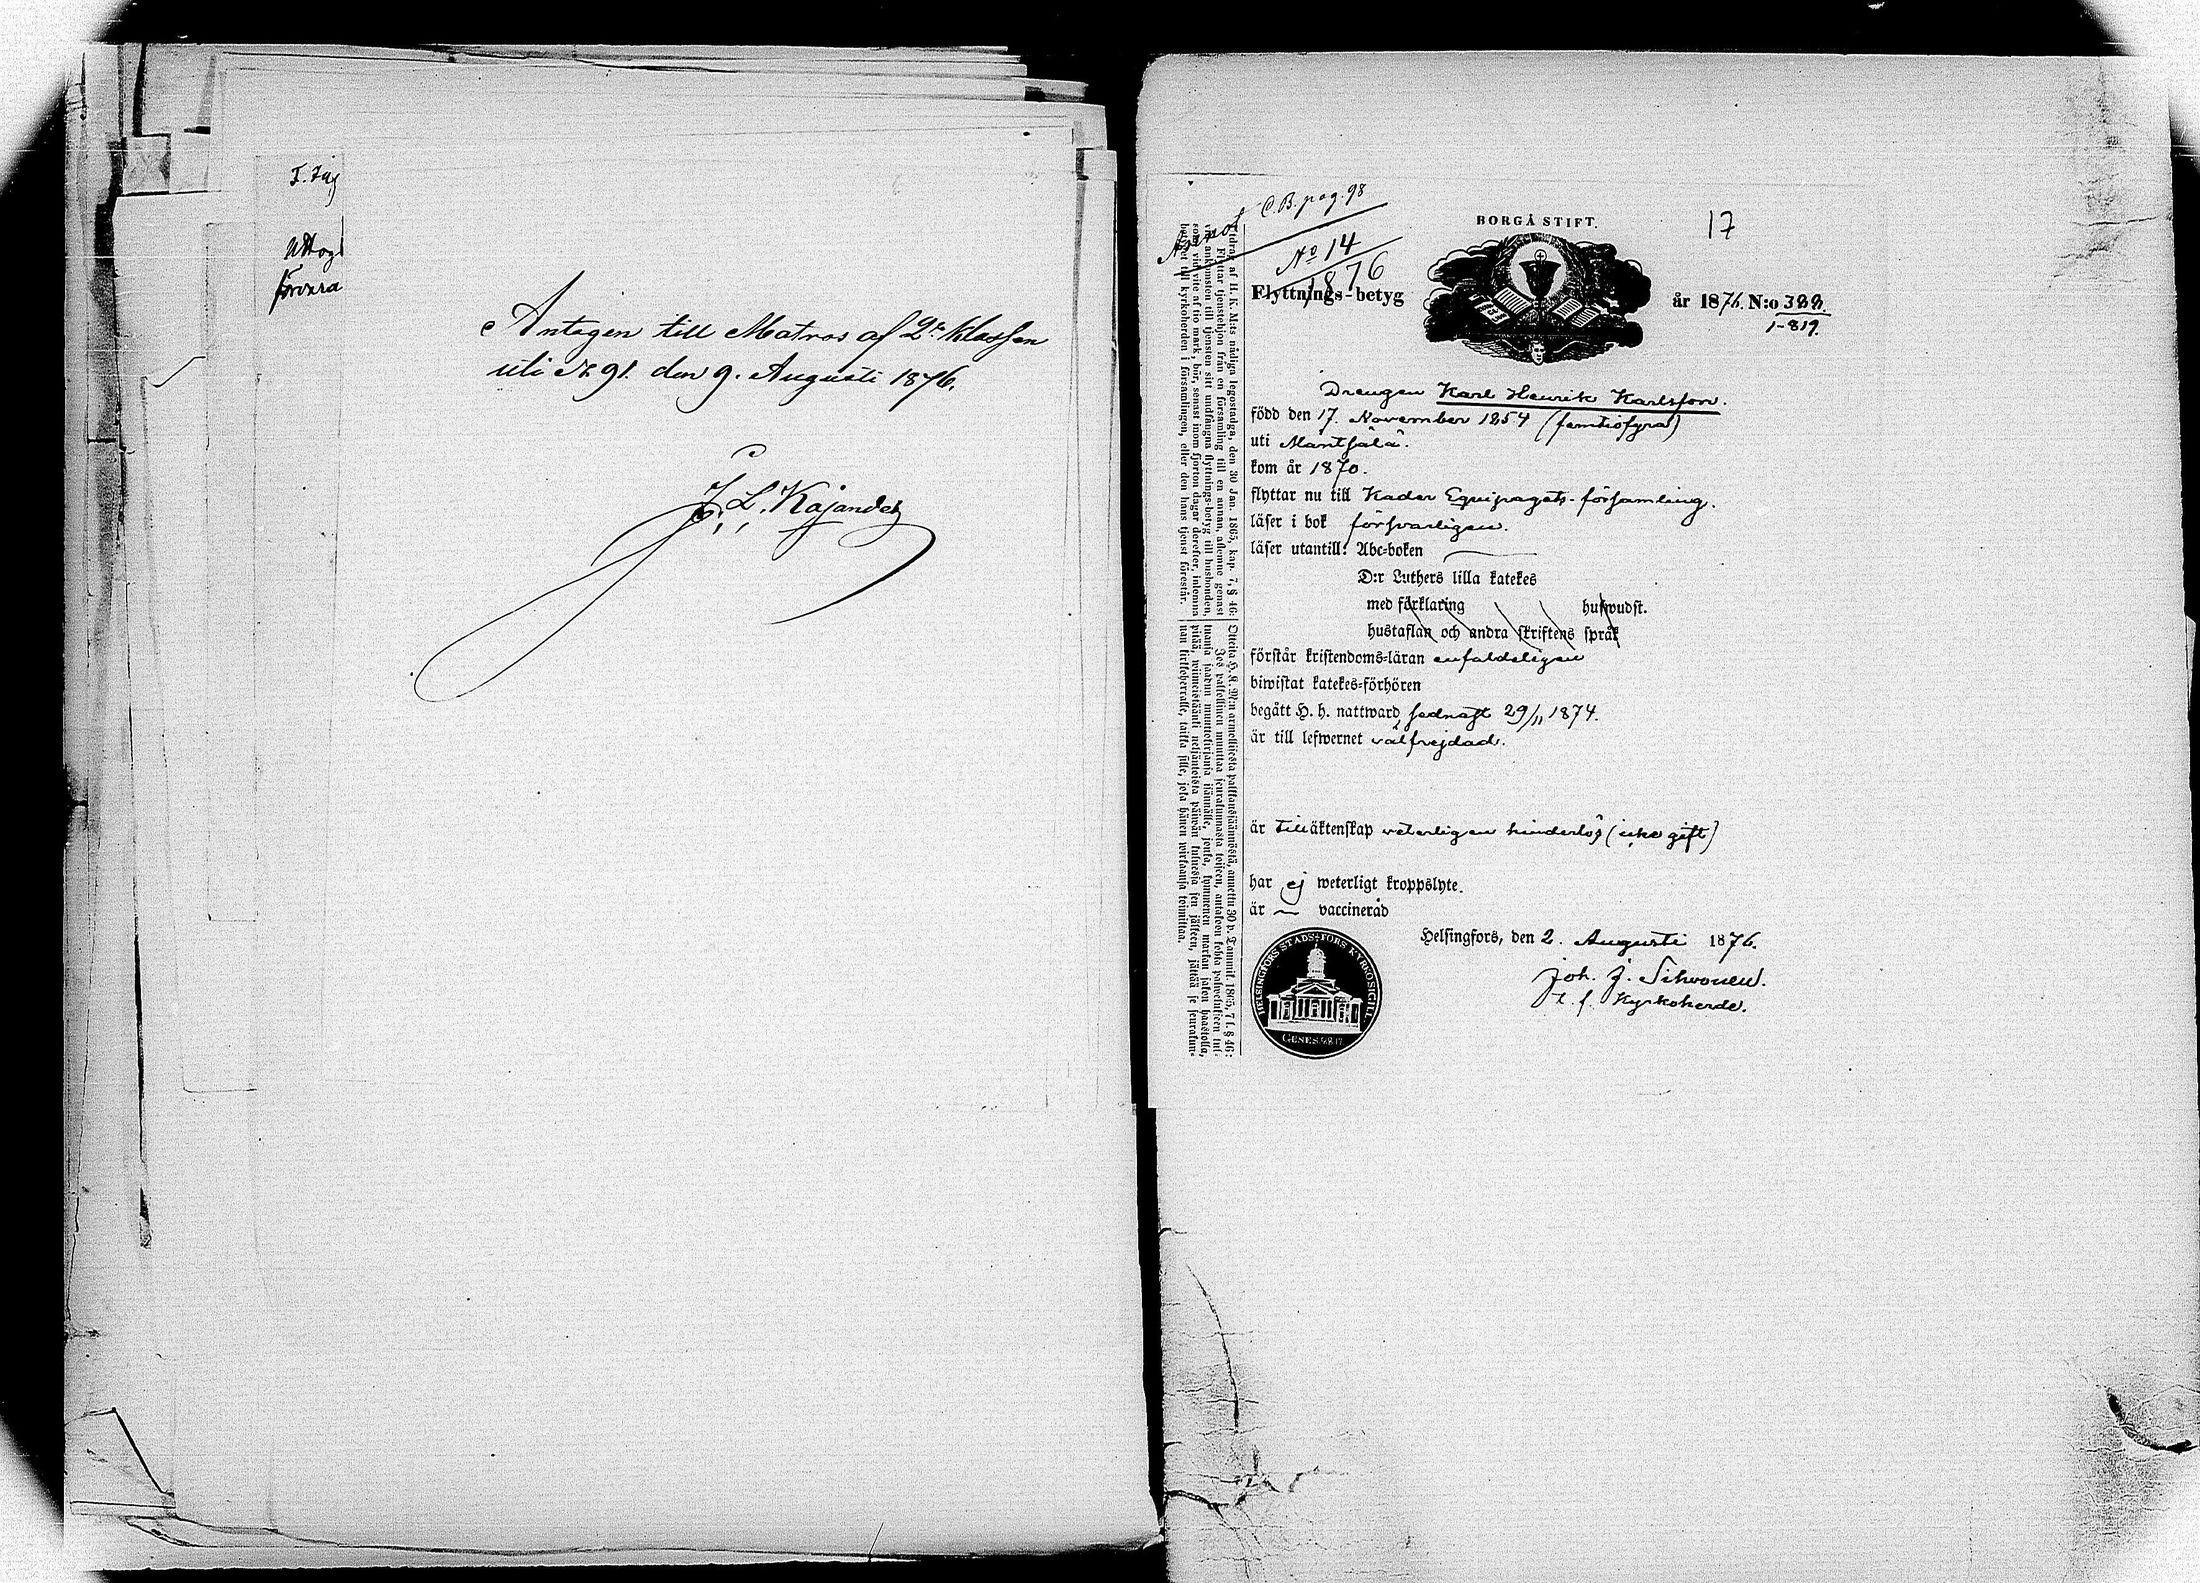 Antagen till Matros af 2:a klassen
uti No 91. den 9. Augusti 1876.
J. L. Kajander
C.B. pag. 98
No 14
1876
BORGÅ STIFT.
17
Flyttnings-betyg
år 1876. N:o 388.
1-819.
Drengen Karl Henrik Karlsson.
född den 17. November 1854 (femtiofyra)
uti Mäntsälä.
kom år 1870.
flyttar nu till Kader Equipagets-församling.
läser i bok försvarligen.
läser utantill: Abc-boken
D:r Luthers lilla katekes
med förklaring hufwudst.
hustaflan och andra skriftens språk
förstår kristendoms-läran enfaldeligen
biwistat katekes-förhören
begått H. h. nattward sednast 29/11 1874.
är till lefwernet välfrejdad.
är till äktenskap veterligen hinderlös (icke gift)
har ej weterligt kroppslyte.
är vaccinerad
Helsingfors, den 2. Augusti 1876.
Joh. J. Sihvonen.
t. f. Kyrkoherde.
HELSINGFORS STADS-FÖRS KYRKOSIGILL
Utdrag af H. K. M:ts nådiga legostadga, den 30 Jan. 1865, kap. 7, § 46:
Flyttar tjenstehjon från en församling till en annan, aflemne genast
vid ankomsten till tjensten sitt undfångna flyttnings-betyg till husbonden,
som vid vite af tio mark, bör, senast inom fjorton dagar derefter, inlemna
betyget till kyrkoherden i församlingen, eller den hans tjenst förestår.